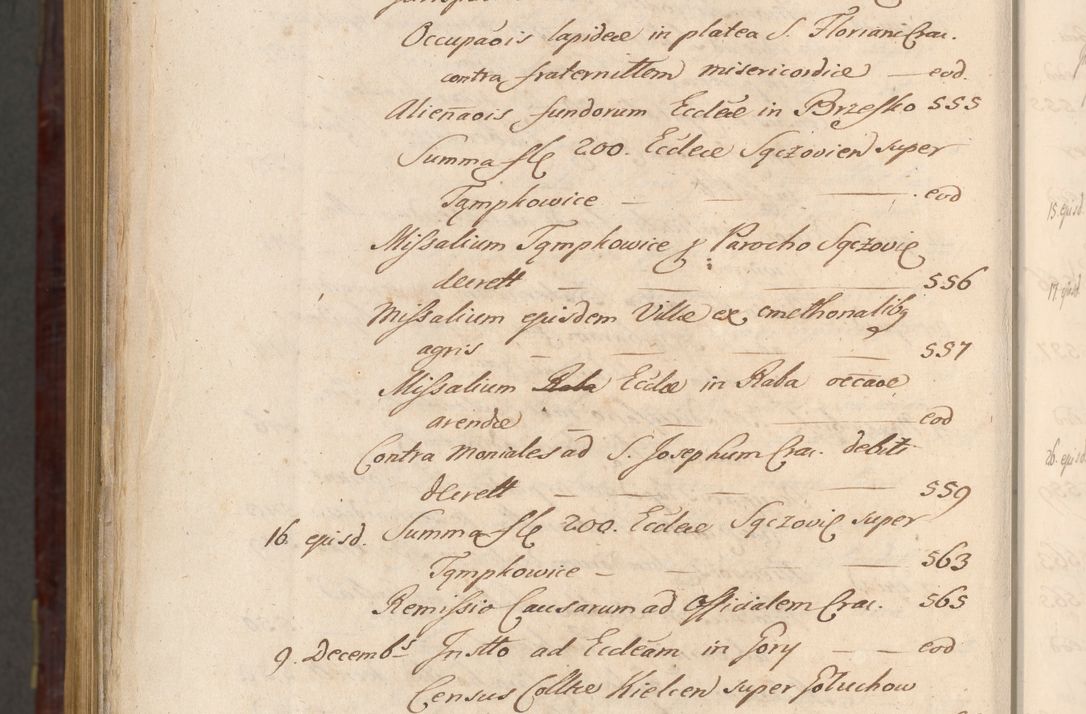 Occupãois lapideæ in platea S. Floriani Crac.
contra fraternittem misericordiæ — eod.
Alienãois fundorum Eccleæ in Brzesko 555
Summa fl 200. Eccleæ Sączovien super
Tąmpkowice — — — . eod
Missalium Tąmpkowice p Parocho Sączovie
decrett — — — 556
Missalium ejusdem Villæ ex cmethonalibq
agris — — — — 557
Missalium Raba Eccłæ in Raba occaoe
arendæ — — — eod
Contra Moniales ad S. Josephum Crac. debiti
decrett — — — — 559
16 ejusd. Summa fl 200. Eccleæ Sączovie super
Tąmpkowice — — — — 563
Remissio Causarum ad Officialem Crac. 565
9. Decembs Instto ad Eccleam in Gory — — eod
Census Colltæ Kielcen super Gołuchow
15. ejusd.